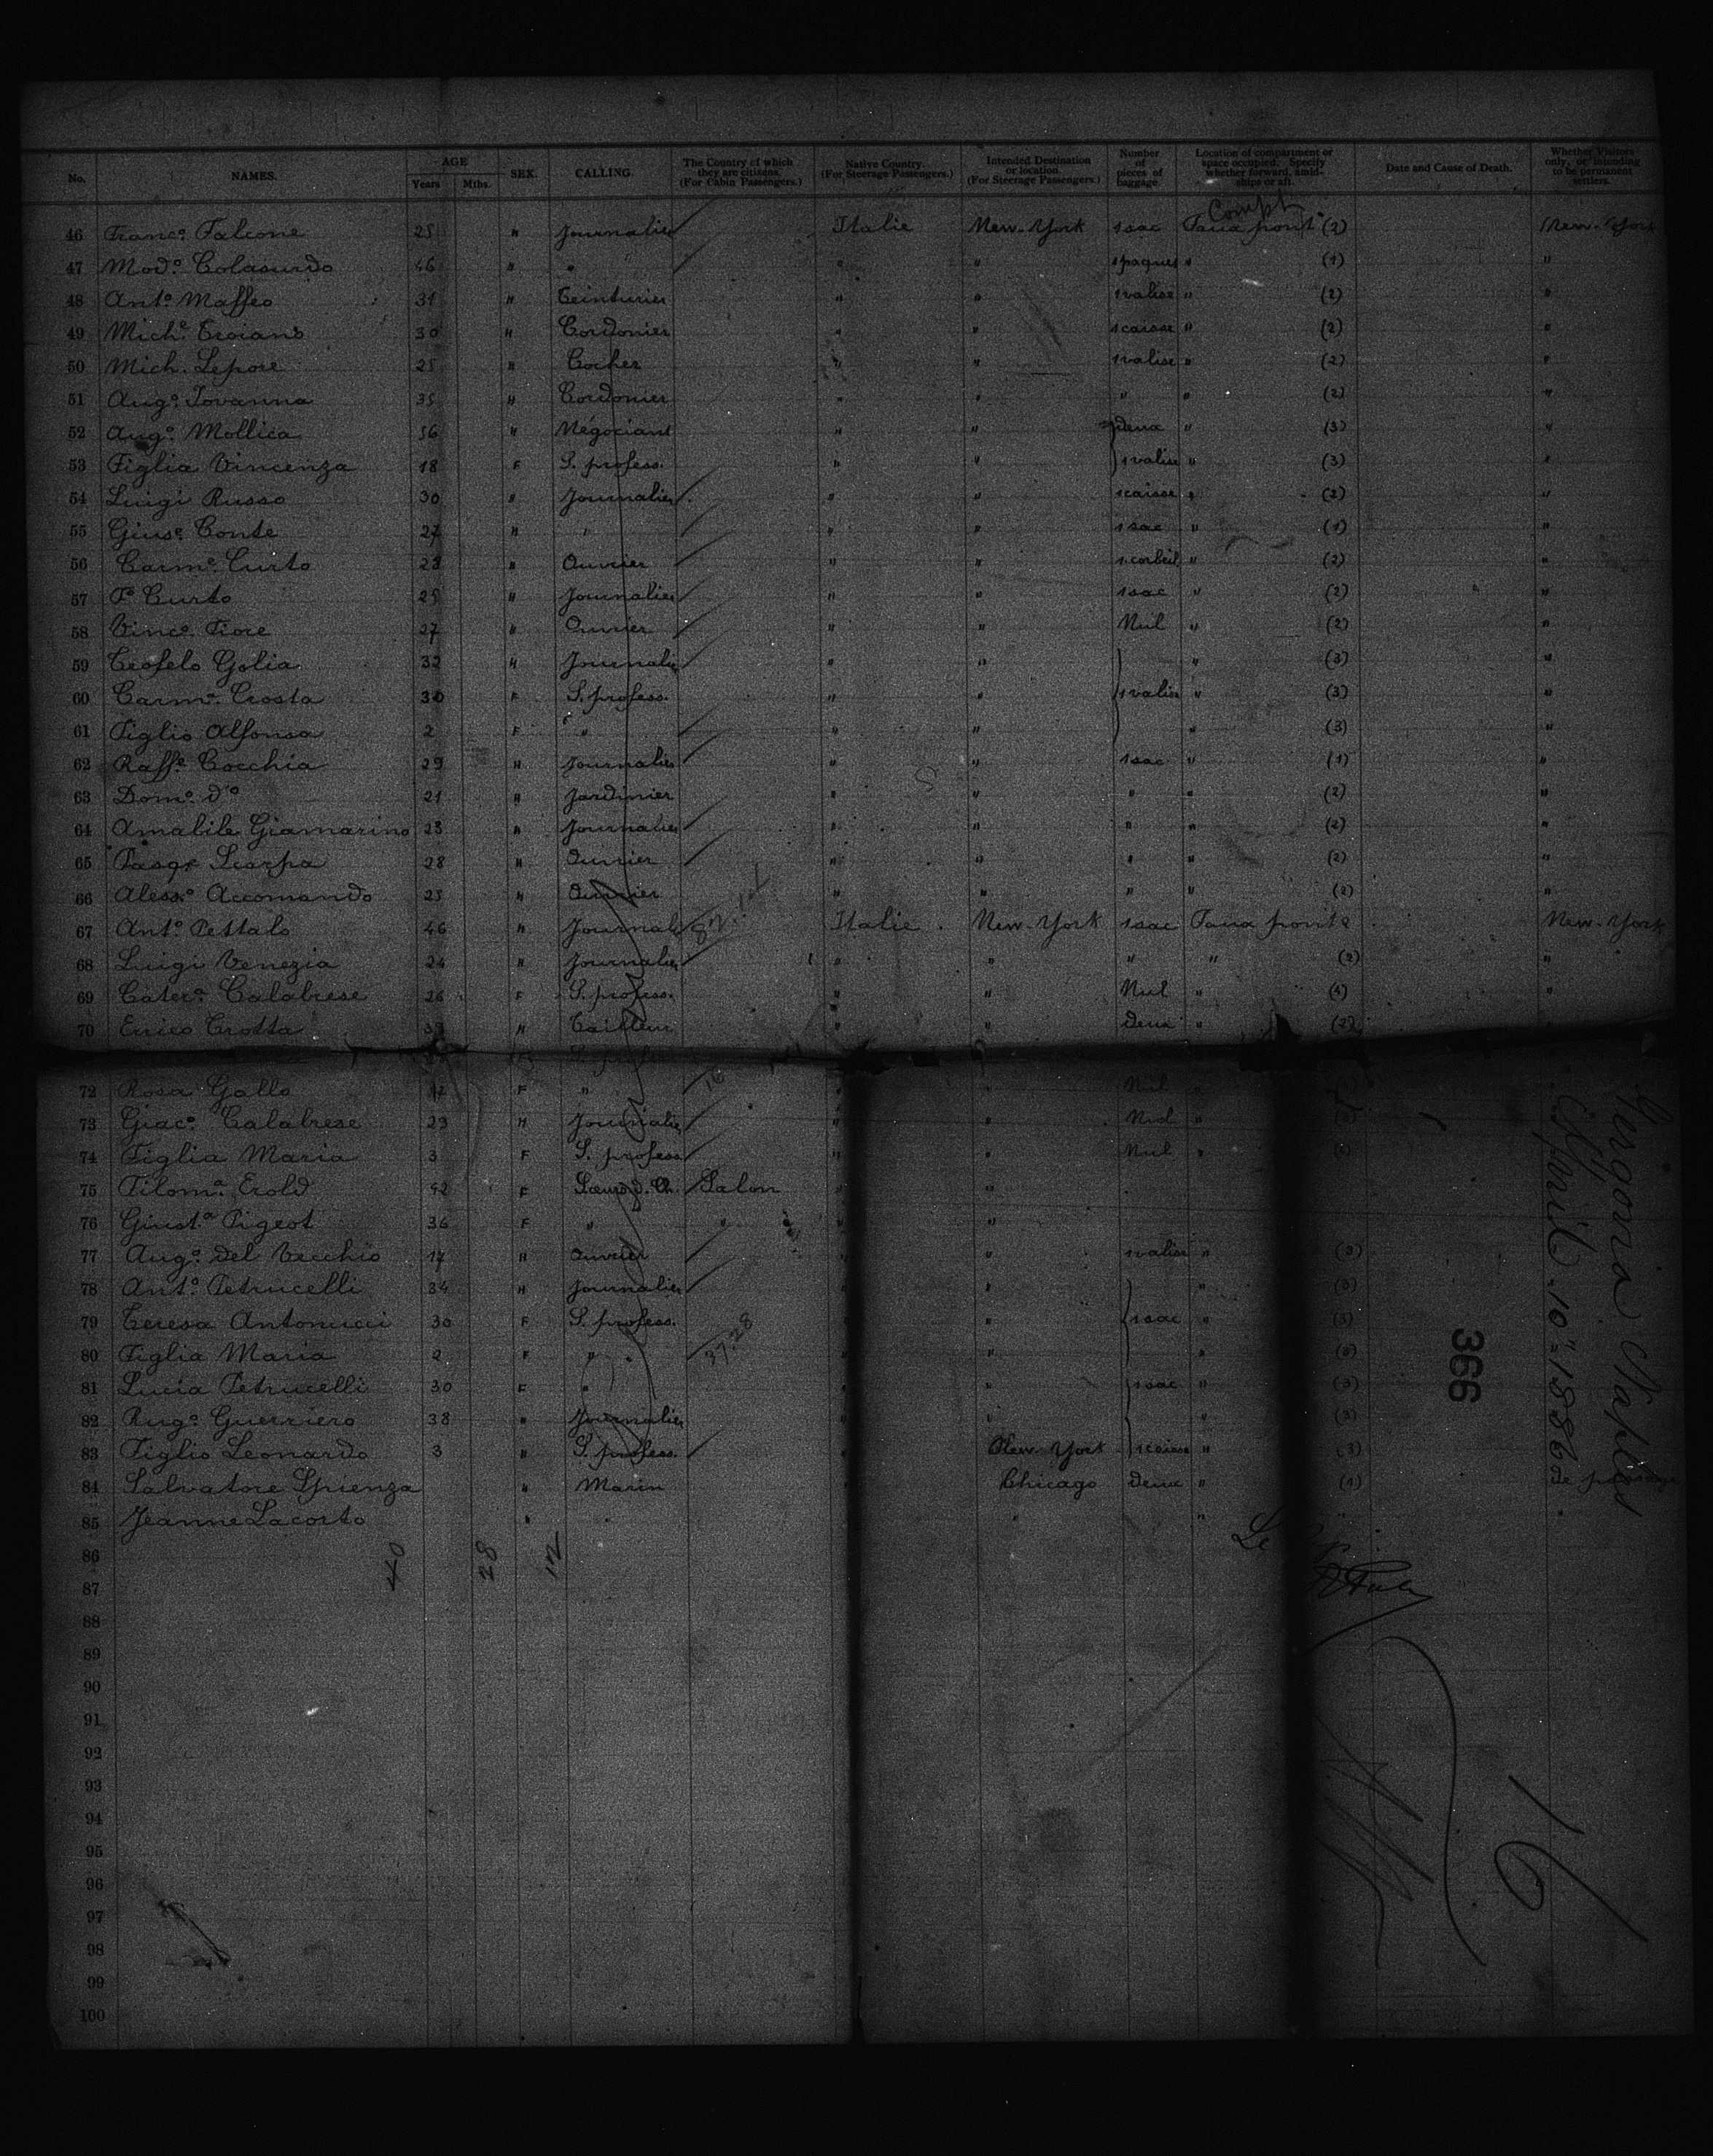 No. NAMES. AGE Years Mths. SEX. CALLING. The Country of which they are citizens. (For Cabin Passengers.) Native Country. (For Steerage Passengers.) Intended Destination or location. (For Steerage Passengers.) Number of pieces of baggage. Location of compartment or space occupied. Specify whether forward, amidships or aft. Date and Cause of Death. Whether Visitors only, or intending to be permanent settlers.
Compt
46 Franc.o Falcone 25 H Journalier Italie New-York 1 sac Faux pont (2) New-York
47 Mod.o Colasurdo 46 " " " " 1 paquet " (1) "
48 Ant.o Maffeo 31 H Teinturier " " 1 valise " (2) "
49 Mich.e Troiano 30 H Cordonier " " 1 caisse " (2) "
50 Mich. Lepore 25 H Cocher " " 1 valise " (2) "
51 Aug.o Iovanna 35 H Cordonier " " " " (2) "
52 Aug.o Mollica 56 H Négociant " " deux " (3) "
53 Figlia Vincenza 18 F S. profess. " " 1 valise " (3) "
54 Luigi Russo 30 H Journalier " " 1 caisse " (2) "
55 Gius.e Conte 27 H " " " 1 sac " (1) "
56 Carm.e Curto 23 H Ouvrier " " 1 corbeil " (2) "
57 F.o Curto 25 H Journalier " " 1 sac " (2) "
58 Vinc.o Fiore 27 H Ouvrier " " Nul " (2) "
59 Teofelo Golia 32 H Journalier " " " (3) "
60 Carm.a Crosta 30 F S. profess. " " 1 valise " (3) "
61 Figlio Alfonsa 2 F " " " " (3) "
62 Raff.e Cocchia 29 H Journalier " " 1 sac " (1) "
63 Dom.o d.o 21 H Jardinier " " " " (2) "
64 Amabile Giamarino 23 H Journalier " " " " (2) "
65 Pasq.e Scarpa 28 H Ouvrier " " " " (2) "
66 Aless.o Accomando 25 H Ouvrier " " " " (2) "
67 Ant.o Pettalo 46 H Journal Italie New-York 1 sac Faux pont New-York
68 Luigi Venezia 24 H Journalier " " " " (2) "
69 Cater.a Calabrese 26 F S. profess. " " Nul " (4) "
70 Errico Trotta 39 H Tailleur " " deux " (2)
72 Rosa Gallo F " " " Nul "
73 Giac.o Calabrese 29 H Journalier " " Nul "
74 Figlia Maria 3 F S. profess " " Nul "
75 Filom.a Erold 42 F Soeur d. Ch. Salon " "
76 Giust.a Pigeot 36 F " " " "
77 Aug.o del Vecchio 17 H Ouvrier " " 1 valise " (2)
78 Ant.o Petrucelli 34 H Journalier " " " (3)
79 Teresa Antonucci 30 F S. profess. " " 1 sac " (3)
80 Figlia Maria 2 F " 37.28 " " " (3)
81 Lucia Petrucelli 30 F " " 1 sac " (3)
82 Rug.o Guerriero 38 " Journalier " " " (3)
83 Figlio Leonardo 3 " S. profess. New-York 1 caisse " (3)
84 Salvatore Spienza " Marin Chicago deux " (4) de passage
85 Jeanne Lacorto " " " " "
86
87
88
89
90
91
92
93
94
95
96
97
98
99
100
40 28 12
Gergovia Naples
April 10" 1886
366
16